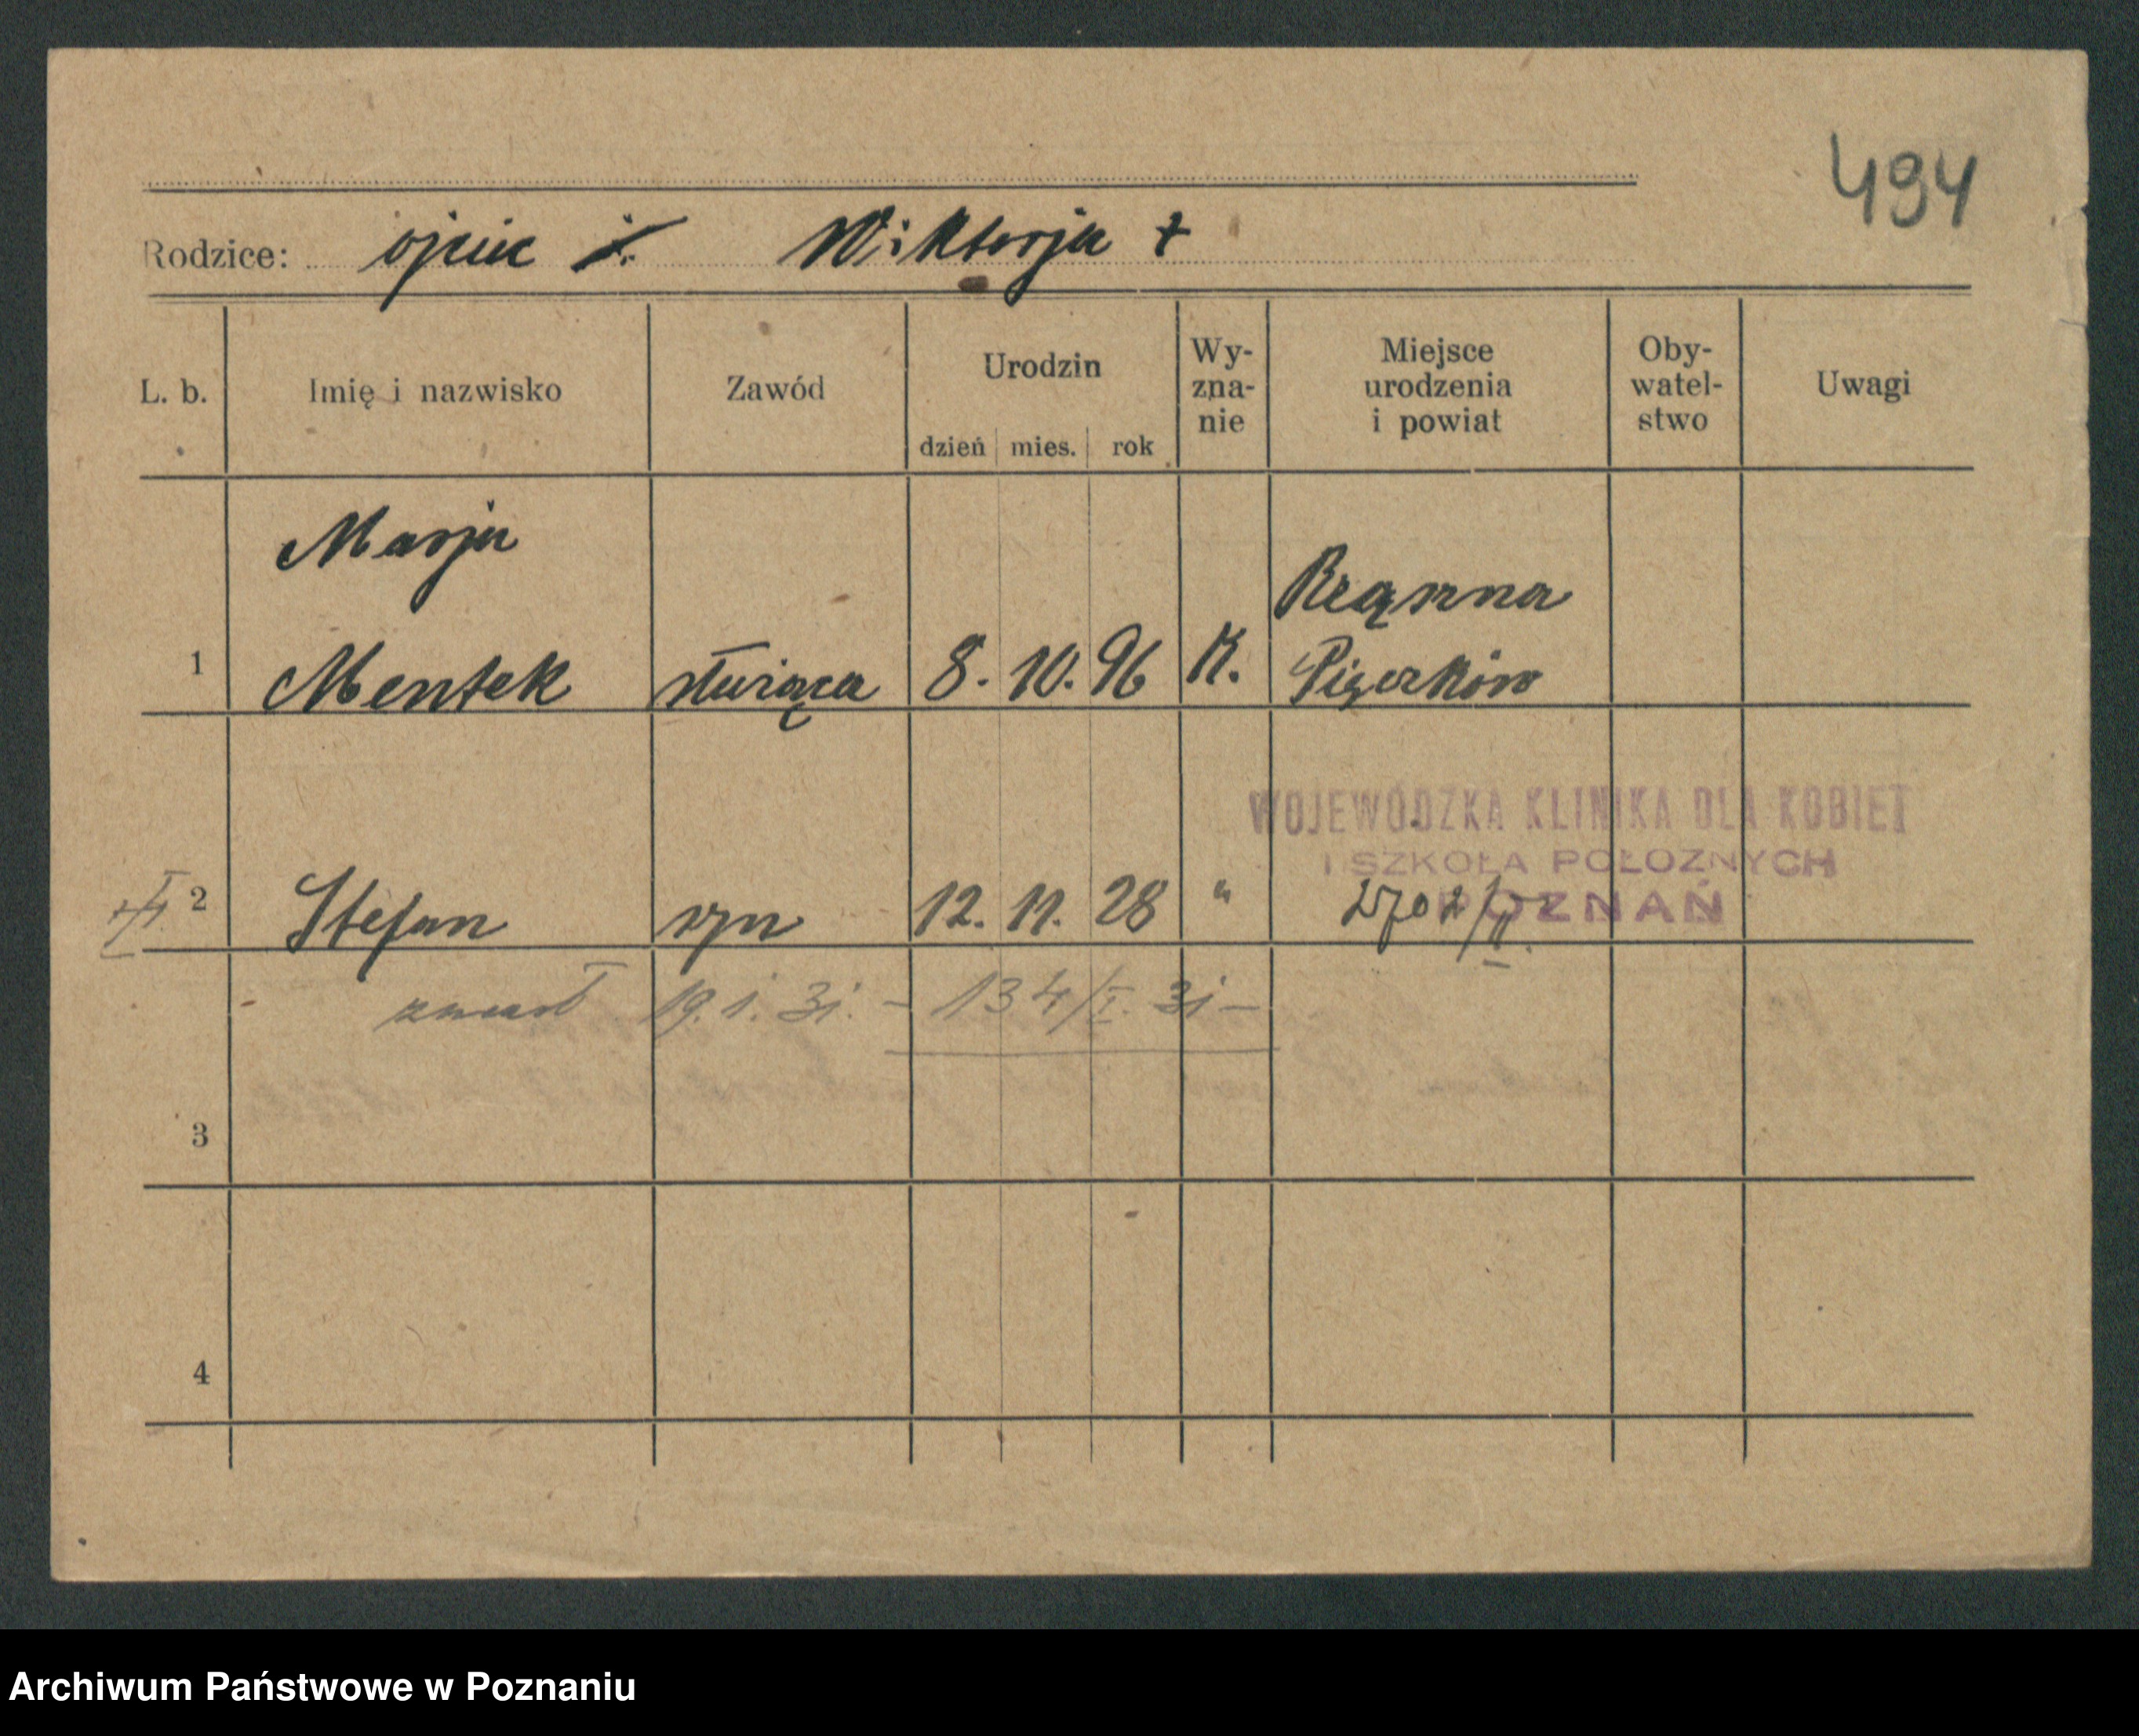 494
Rodzice: ojciec ż. Wiktorja +
L. b.
Imię i nazwisko
Zawód
Urodzin
dzień mies. rok
Wy-
zna-
nie
Miejsce
urodzenia
i powiat
Oby-
watel-
stwo
Uwagi
Marja
1 Mentek służąca 8. 10. 96 K.
Piotrków
WOJEWÓDZKA KLINIKA DLA KOBIET
I SZKOŁA POŁOŻNYCH
POZNAŃ
2 Stefan syn 12. 11. 28 " 2702/II.
zmarł 19. 1. 31. - 134/I. 31 -
3
4
Archiwum Państwowe w Poznaniu